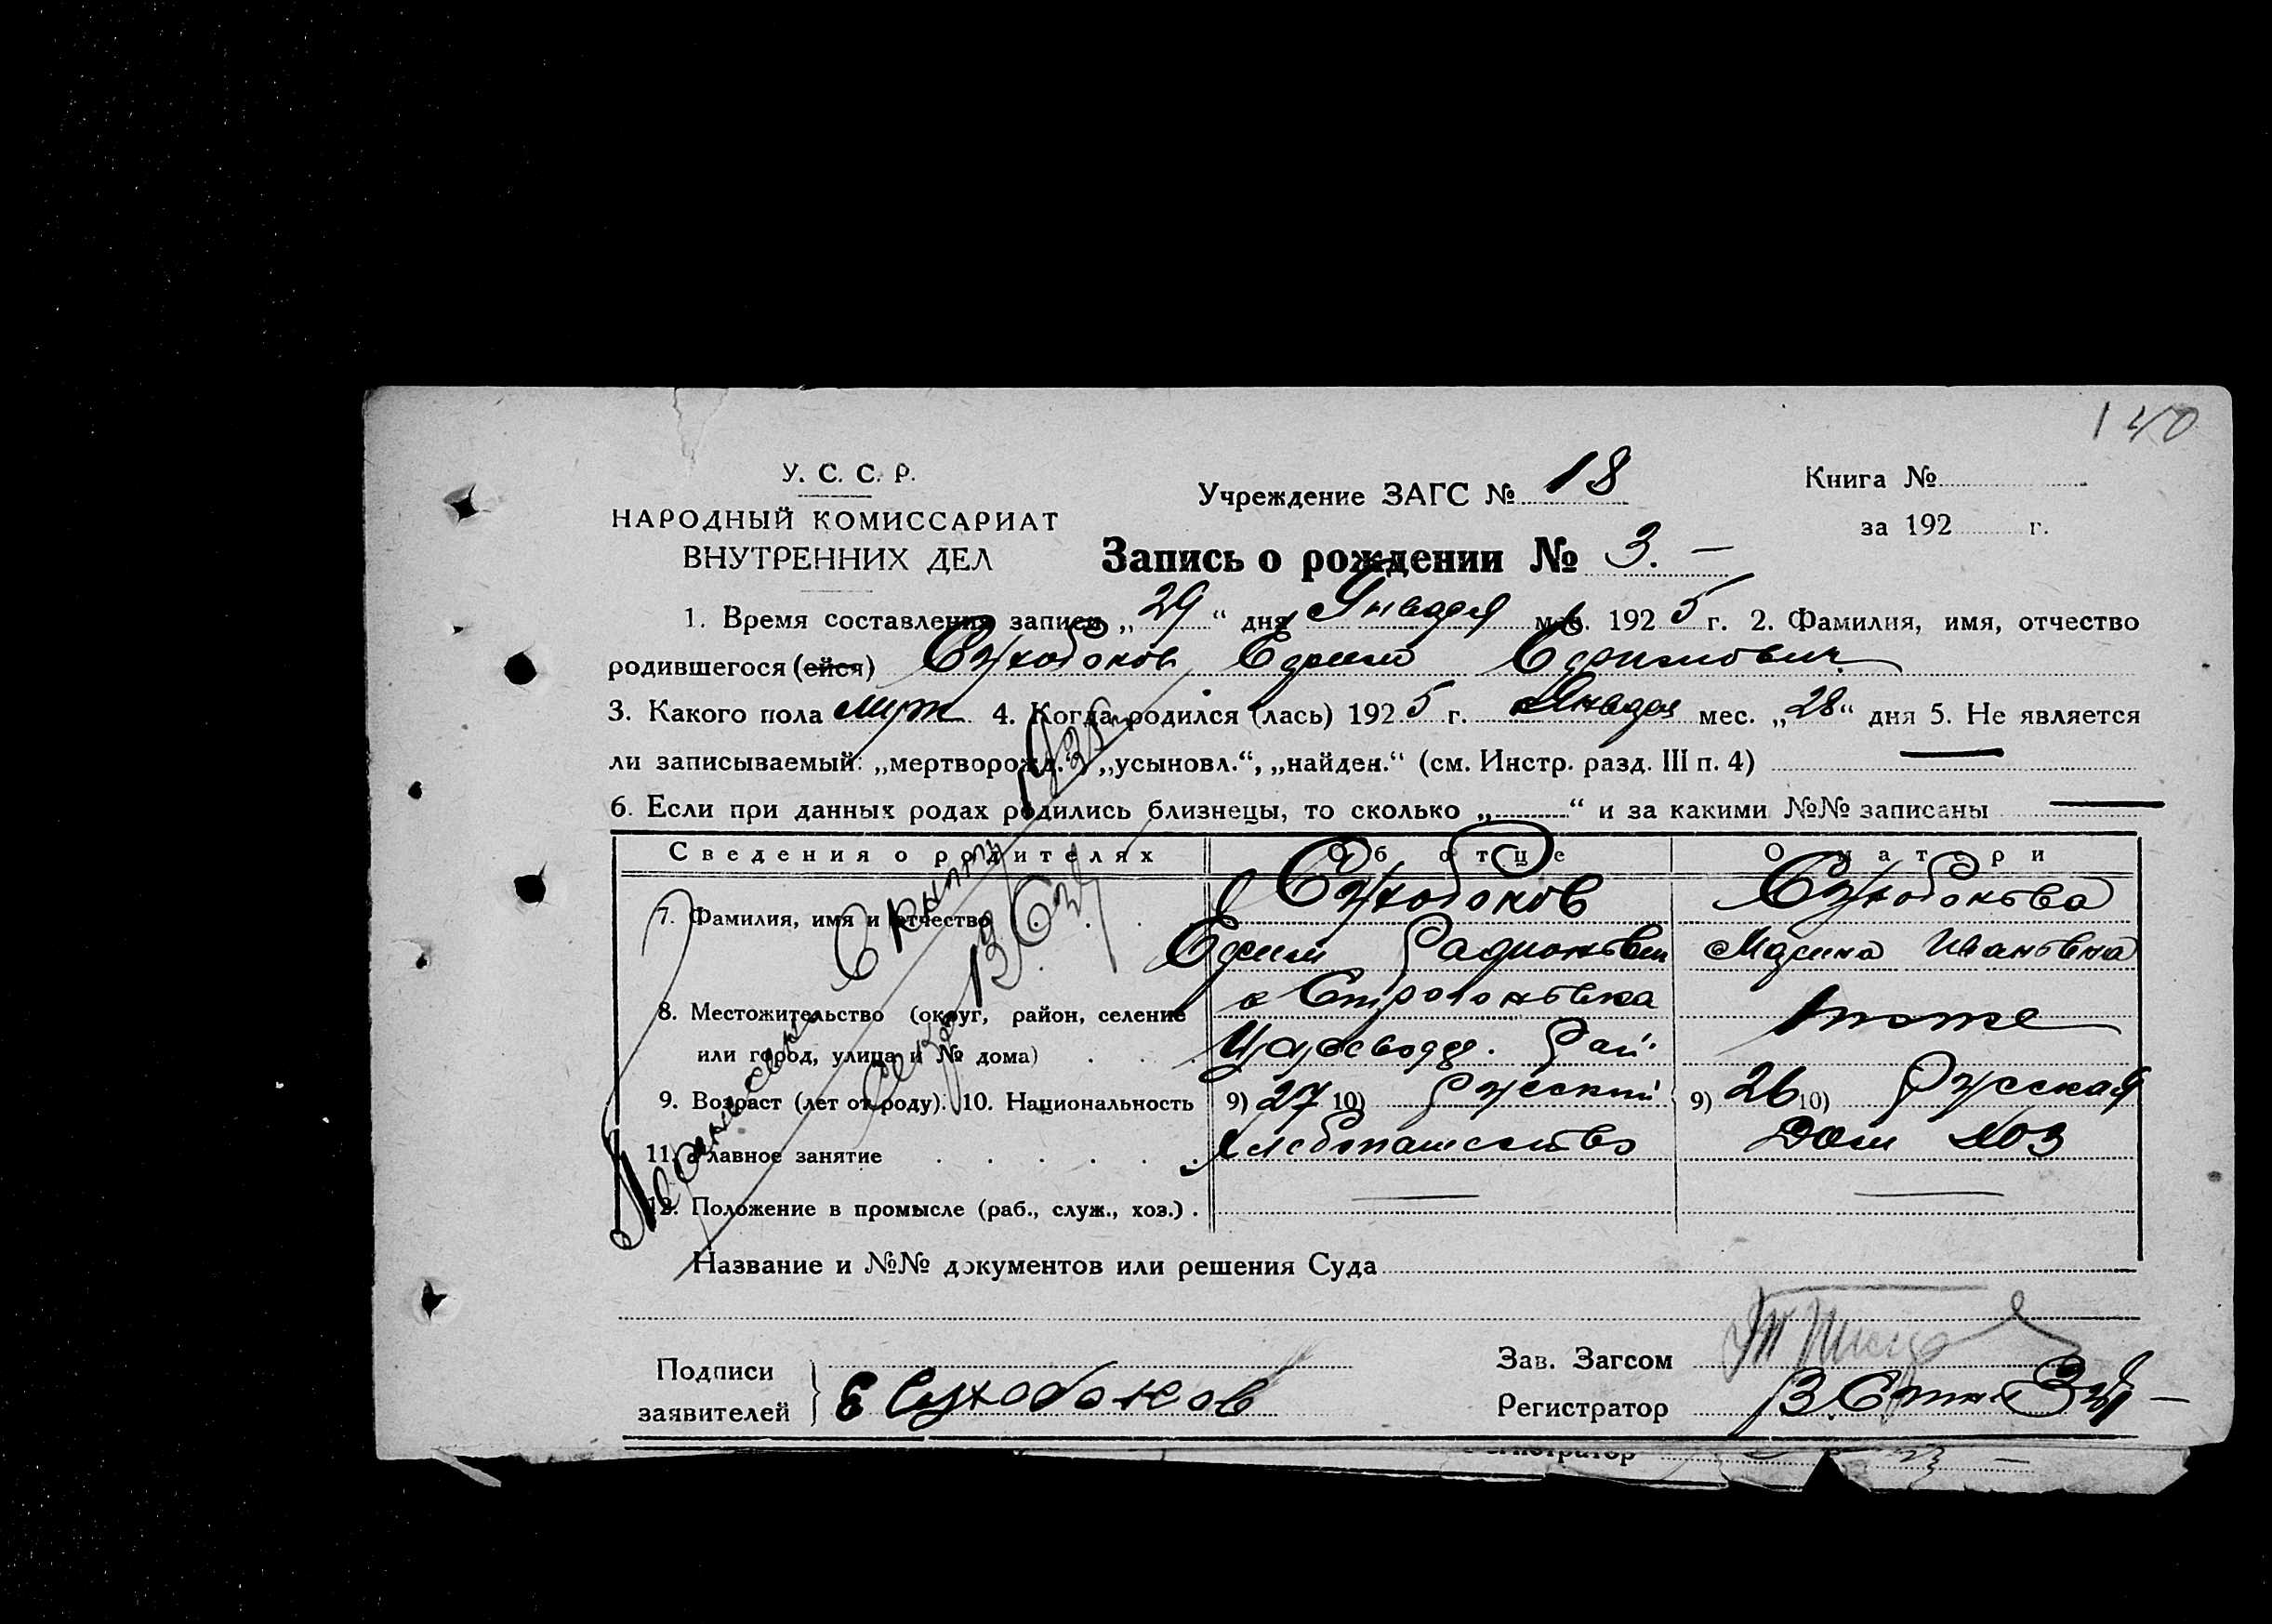 140
У. С. С. Р.
НАРОДНЫЙ КОМИССАРИАТ
ВНУТРЕННИХ ДЕЛ
Учреждение ЗАГС № 18
Книга №
за 192 г.
Запись о рождении № 3. —
1. Время составления записи „29“ дня Января мес. 1925 г. 2. Фамилия, имя, отчество
родившегося (ейся) Сухобоков Ефим Ефимович
3. Какого пола муж 4. Когда родился (лась) 1925 г. Января мес. „28“ дня 5. Не является
ли записываемый: „мертворожд.“, „усыновл.“, „найден.“ (см. Инстр. разд. III п. 4) —
6. Если при данных родах родились близнецы, то сколько „ “ и за какими №№ записаны —
Сведения о родителях Об отце О матери
7. Фамилия, имя и отчество Сухобоков Сухобокова
Ефим Радионович Марина Ивановна
8. Местожительство (округ, район, селение с Строгоновка тоже
или город, улица и № дома) Рай.
9. Возраст (лет от роду). 10. Национальность 9) 27 10) Русский 9) 26 10) Русская
11. Главное занятие Хлебопашество Дом хоз
12. Положение в промысле (раб., служ., хоз.) . — —
Название и №№ документов или решения Суда
Подписи
заявителей
Е Сухобоков
Зав. Загсом
Регистратор
Регистратор